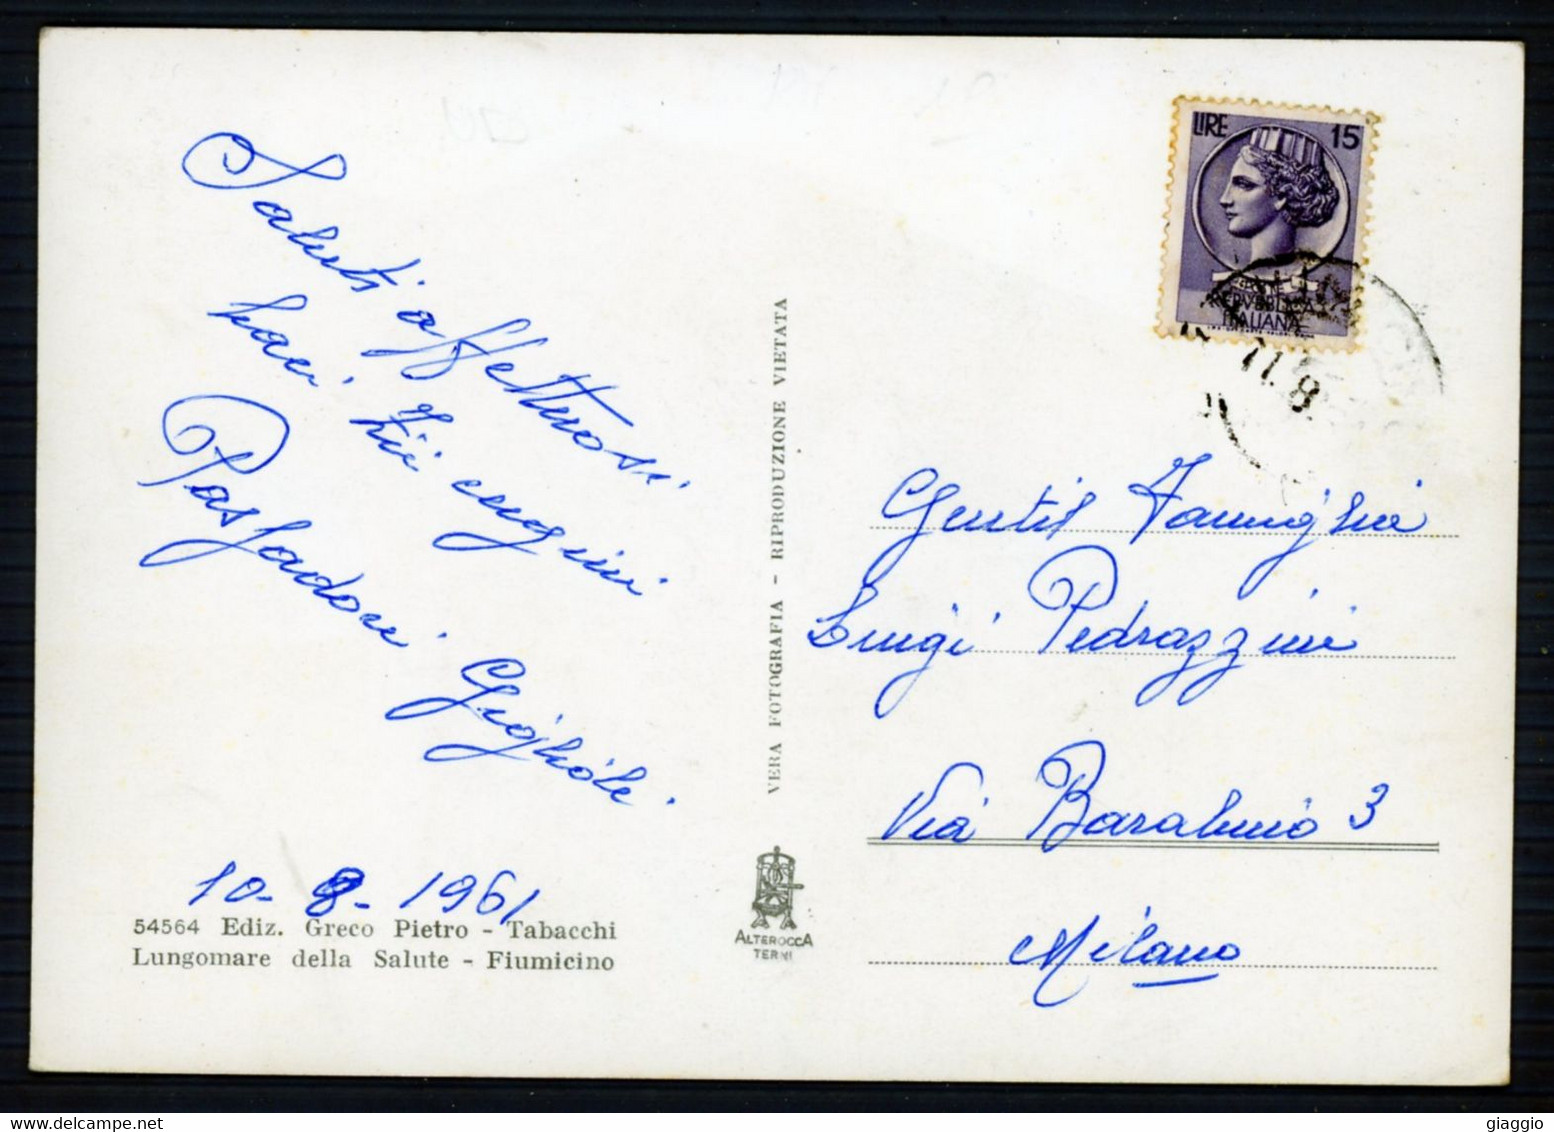 Saluti affettuosi
baci zii cugini
Passadori Ghighioli
10-8-1961
54564 Ediz. Greco Pietro - Tabacchi
Lungomare della Salute - Fiumicino
VERA FOTOGRAFIA - RIPRODUZIONE VIETATA
ALTEROCCA
TERNI
LIRE 15
REPVBBLICA
ITALIANA
11.8
Gentil Famiglia
Luigi Pedrazzini
Via 3
Milano
giaggio